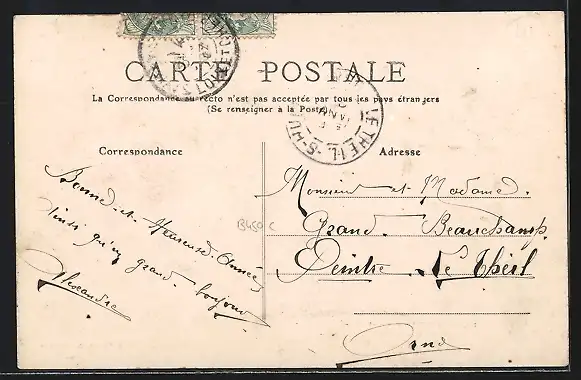 CARTE POSTALE
La Correspondance au recto n'est pas acceptée par tous les pays étrangers
(Se renseigner à la Poste)
Correspondance
Adresse
Bonne et Heureuse Année
Ainsi qu'un grand bonjour
Alexandre
B450 C
LE THEIL-S-HU
JANV
Monsieur et Madame.
Grand. Beauchamp.
Peintre. Le Theil
Orne